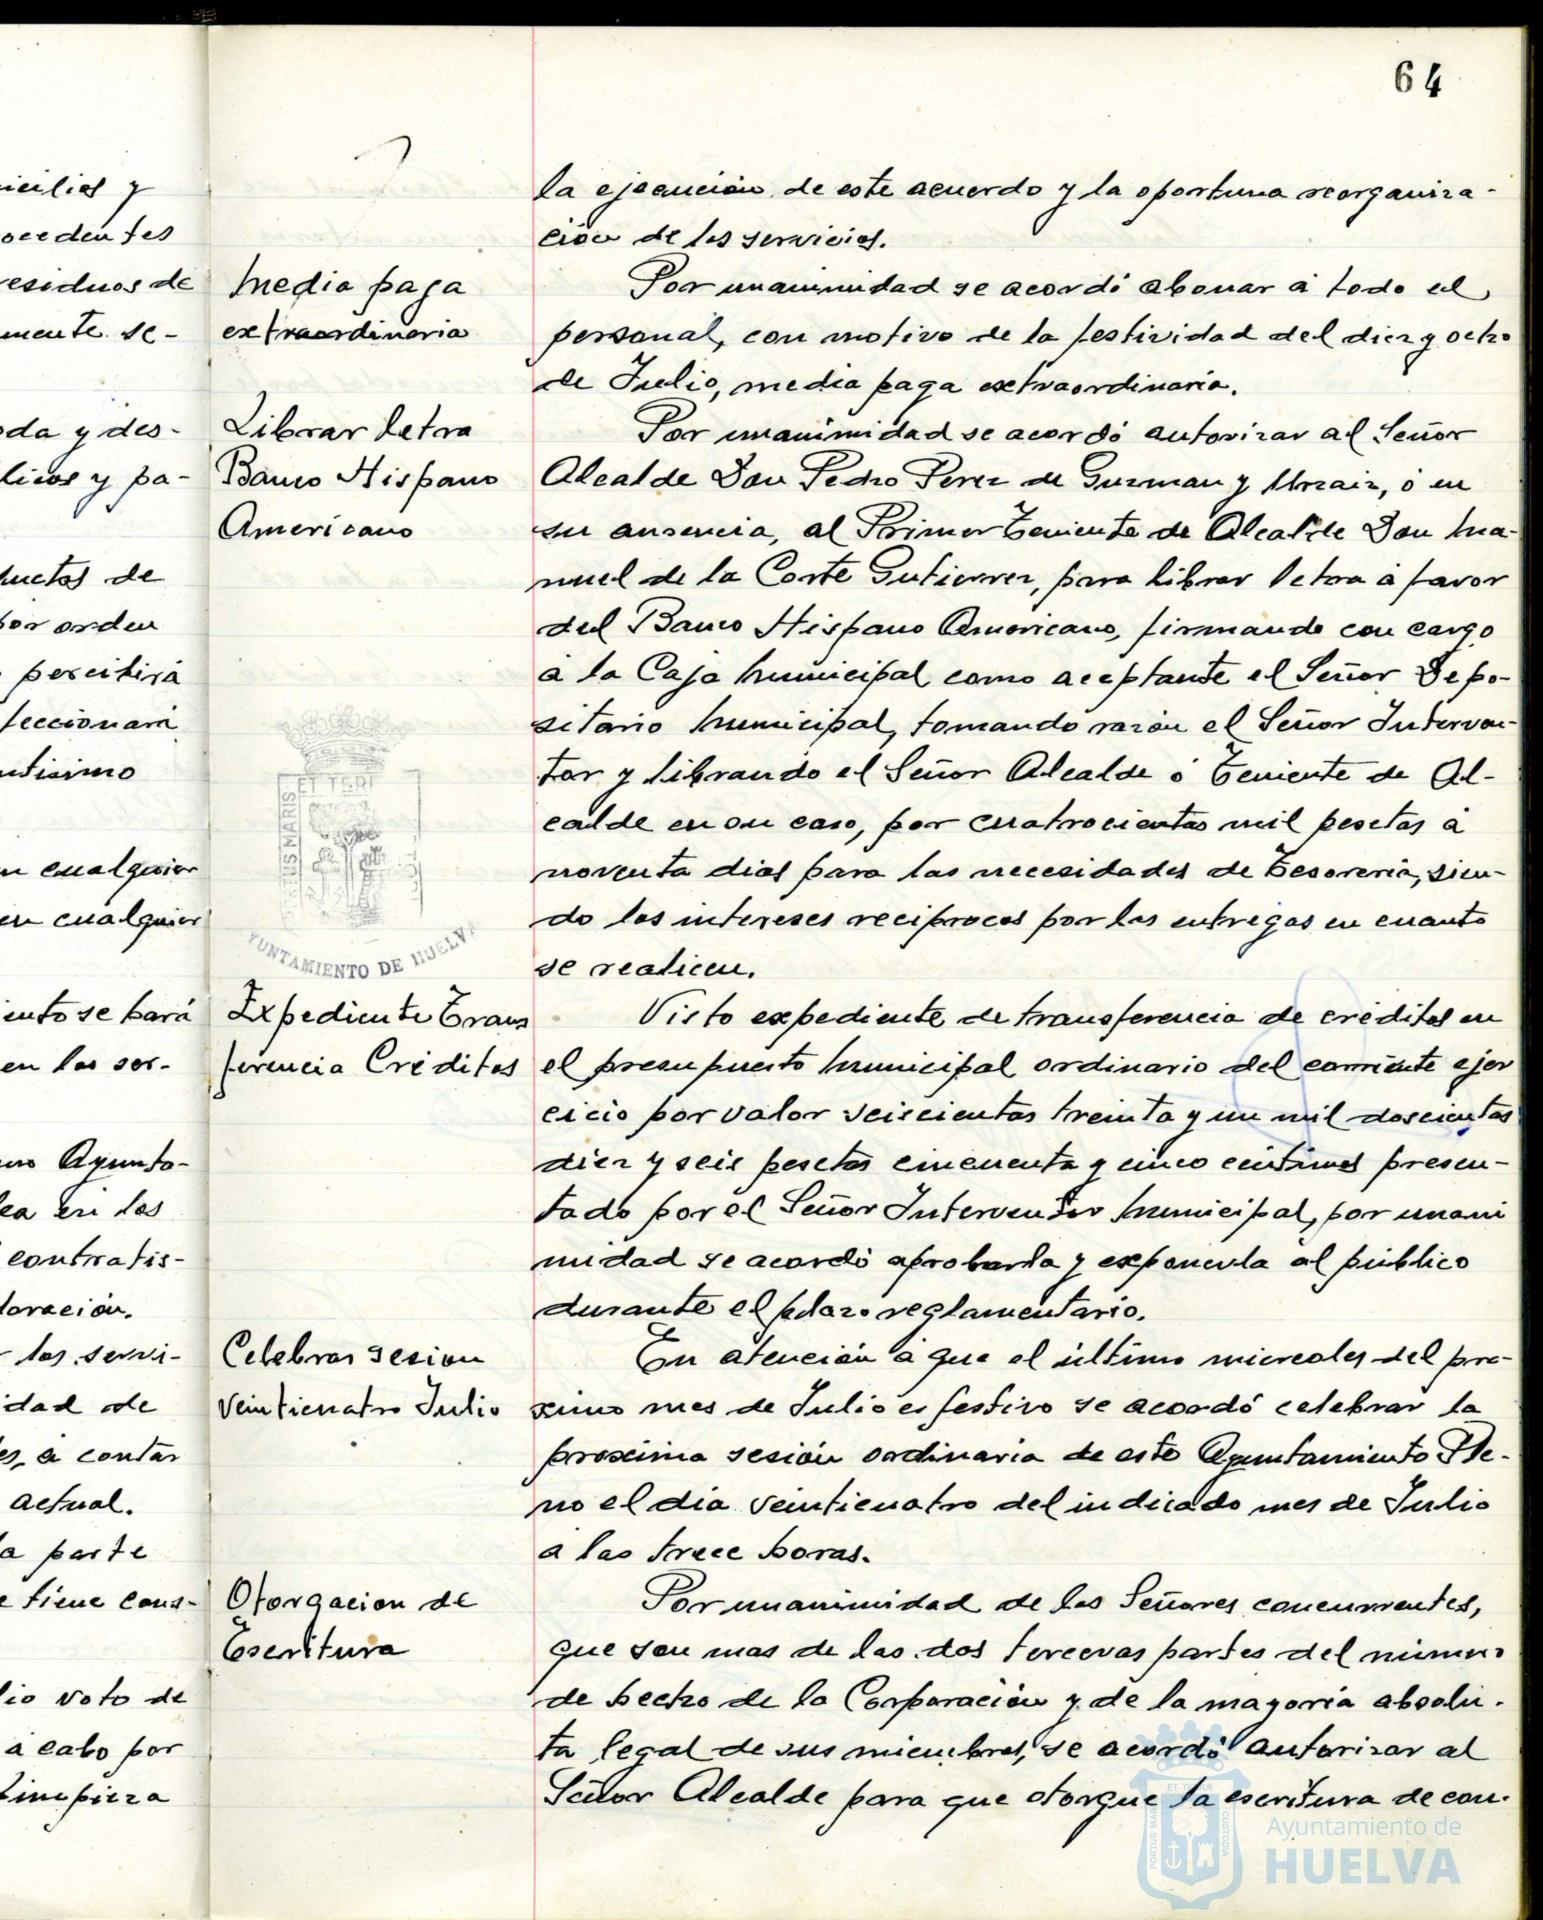 64
icilios y
ocedentes
esiduos de
mente se-
oda y des-
licos y pa-
ductos de
por orden
percibirá
feccionará
ntísimo
n cualquier
en cualquier
iento se hará
en los ser-
mo Ayunta-
lea en los
contratis-
loración.
los servi-
idad de
es, a contar
actual.
la parte
e tiene cons-
lio voto de
a cabo por
limpieza
la ejecución de este acuerdo y la oportuna reorganiza-
ción de los servicios.
Media paga
extraordinaria
Por unanimidad se acordó abonar á todo el
personal, con motivo de la festividad del diez y ocho
de Julio, media paga extraordinaria.
Librar letra
Banco Hispano
Americano
Por unanimidad se acordó autorizar al Señor
Alcalde Don Pedro Perez de Guzman y Urzaiz, ó en
su ausencia, al Primer Teniente de Alcalde Don Ma-
nuel de la Corte Gutierrez, para librar letra á favor
del Banco Hispano Americano, firmando con cargo
á la Caja Municipal como aceptante el Señor Depo-
sitario Municipal, tomando razón el Señor Interven-
tor y librando el Señor Alcalde ó Teniente de Al-
calde en su caso, por cuatrocientas mil pesetas á
noventa dias para las necesidades de Tesorería, sien-
do los intereses reciprocos por las entregas en cuanto
se realicen.
ET TERR
PORTUS MARIS
AYUNTAMIENTO DE HUELVA
Expediente Trans
ferencia Créditos
Visto expediente de transferencia de créditos en
el presupuesto Municipal ordinario del corriente ejer
cicio por valor seiscientas treinta y un mil doscientas
diez y seis pesetas cincuenta y cinco céntimos presen-
tado por el Señor Interventor Municipal, por unani
midad se acordó aprobarla y exponerla al público
durante el plazo reglamentario.
Celebrar sesion
veinticuatro Julio
En atención á que el último miercoles del pro-
ximo mes de Julio es festivo se acordó celebrar la
proxima sesión ordinaria de este Ayuntamiento Ple-
no el día veinticuatro del indicado mes de Julio
á las trece horas.
Otorgacion de
Escritura
Por unanimidad de los Señores concurrentes,
que son mas de las dos terceras partes del número
de hecho de la Corporación y de la mayoría absolu-
ta legal de sus miembros, se acordó autorizar al
Señor Alcalde para que otorgue la escritura de con-
PORTUS MARIS ET TERRAE CUSTODIA
Ayuntamiento de
HUELVA